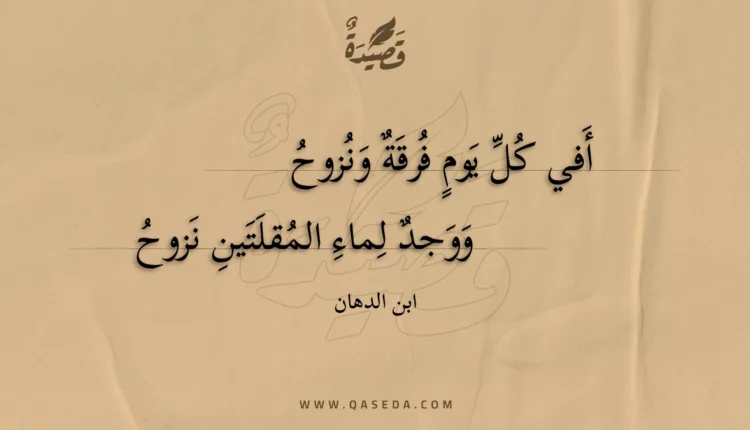 قَصِيدَةٌ
أَفي كُلِّ يَومٍ فُرقَةٌ وَنُزوحُ
وَوَجدٌ لِماءِ المُقلَتَينِ نَزوحُ
ابن الدهان
WWW.QASEDA.COM